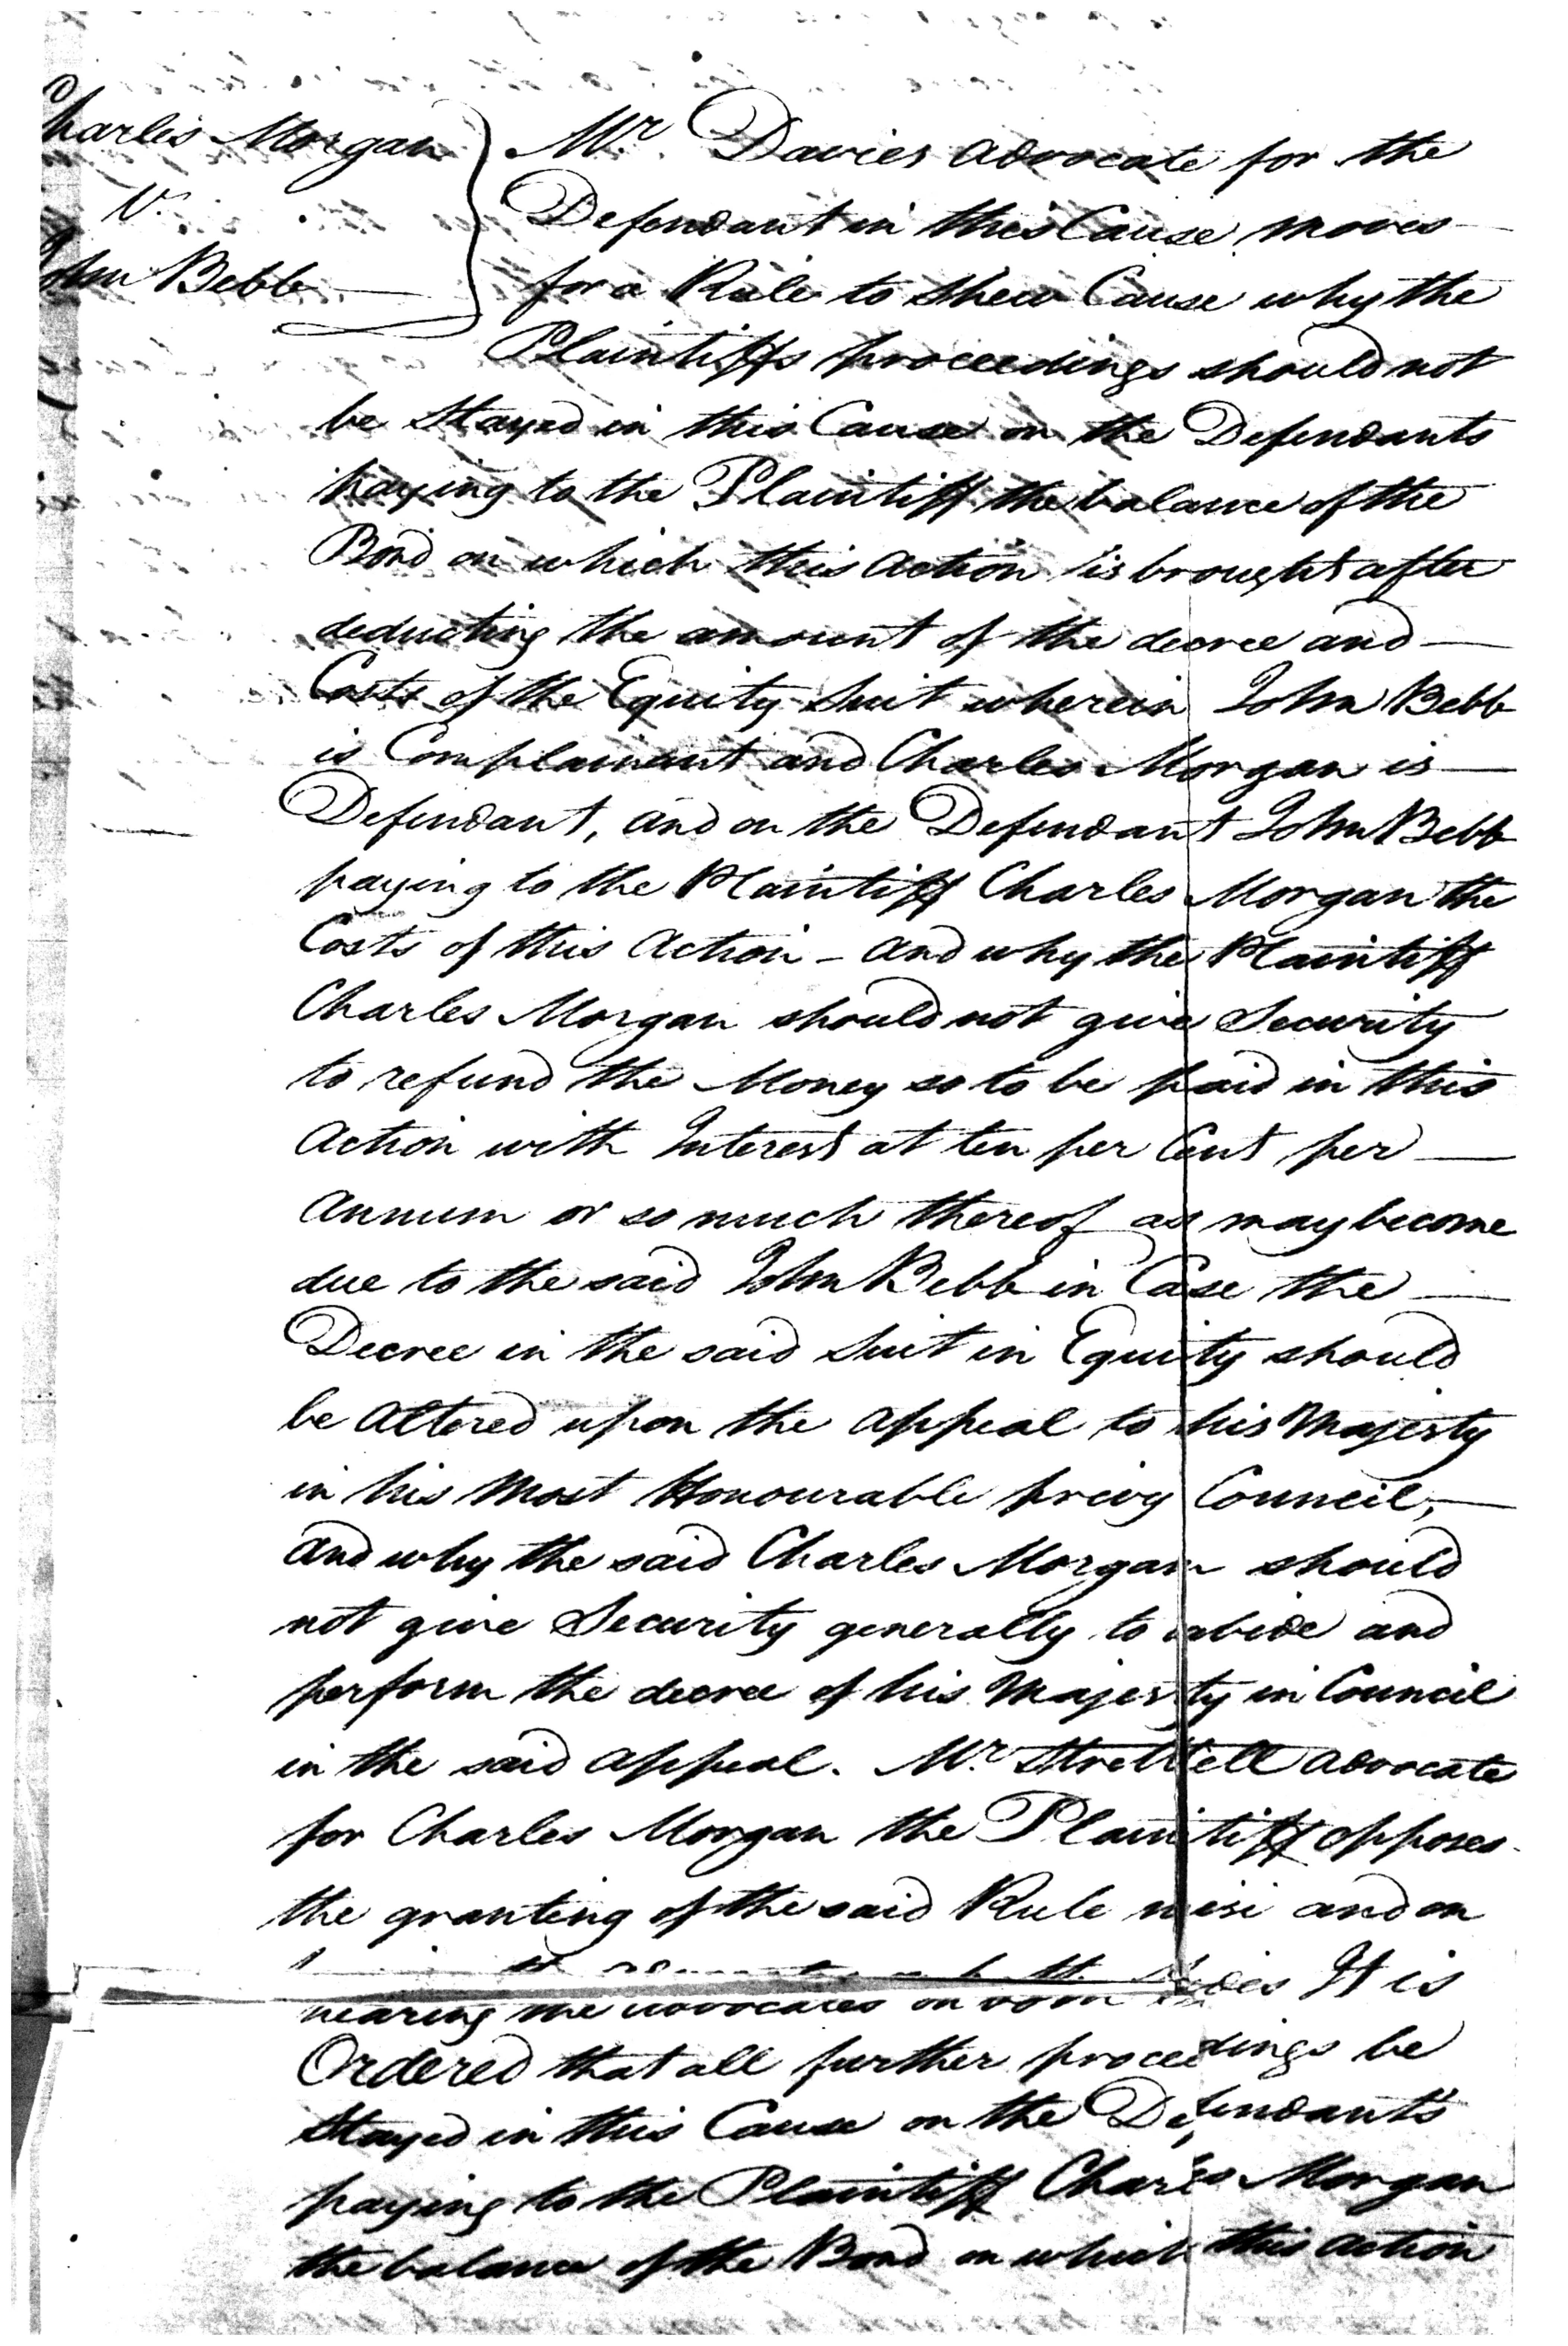 Charles Morgan
v.
John Bebb
Mr. Davies Advocate for the
Defendant in this Cause moves
for a Rule to shew Cause why the
Plaintiffs proceedings should not
be Stayed in this Cause on the Defendants
paying to the Plaintiff the balance of the
Bond on which this Action is brought after
deducting the amount of the decree and
Costs of the Equity Suit wherein John Bebb
is Complainant and Charles Morgan is
Defendant, and on the Defendant John Bebb
paying to the Plaintiff Charles Morgan the
Costs of this Action - and why the Plaintiff
Charles Morgan should not give Security
to refund the Money so to be paid in this
Action with Interest at ten per Cent per
Annum or so much thereof as may become
due to the said John Bebb in Case the
Decree in the said Suit in Equity should
be altered upon the appeal to his Majesty
in his Most Honourable privy Council,
and why the said Charles Morgan should
not give Security generally to abide and
perform the decree of his Majesty in Council
in the said appeal. Mr. Strettell Advocate
for Charles Morgan the Plaintiff opposes
the granting of the said Rule nisi and on
hearing the advocates on both sides It is
Ordered that all further proceedings be
Stayed in this Cause on the Defendants
paying to the Plaintiff Charles Morgan
the balance of the Bond on which this Action